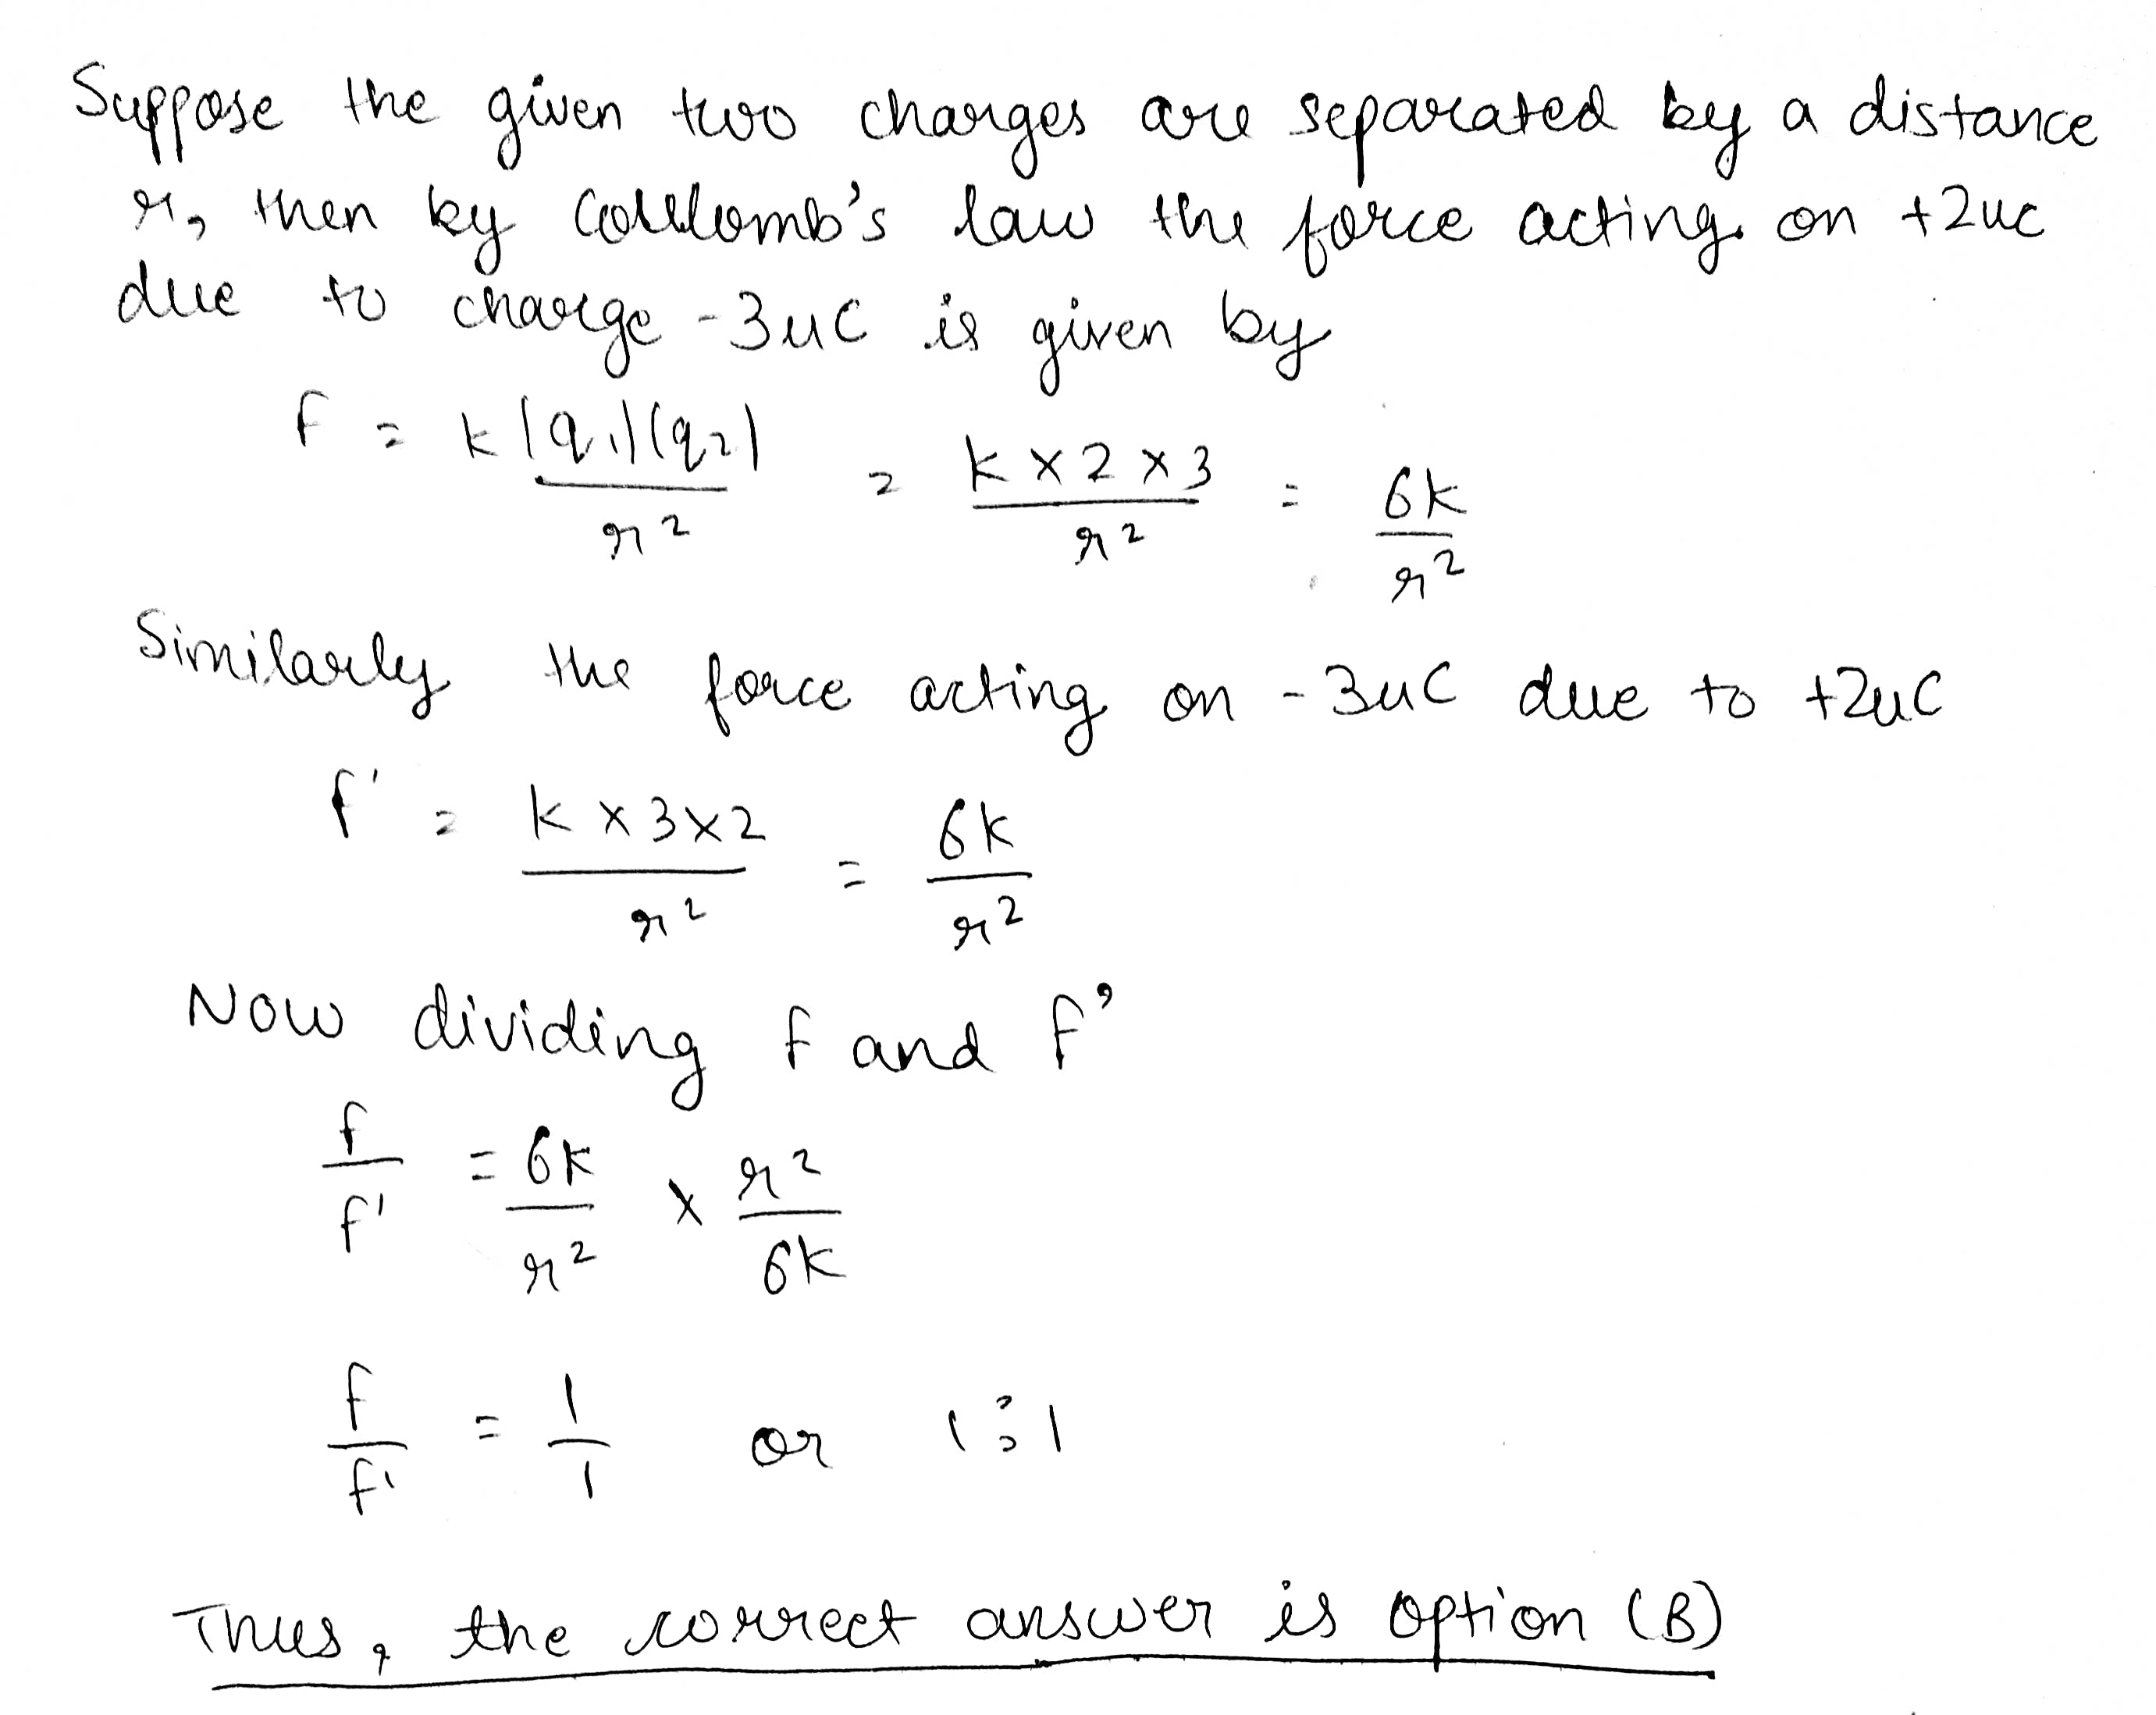 Suppose the given two charges are separated by a distance
r, then by Coulomb's law the force acting on +2uc
due to charge -3uC is given by
F = k|q1||q2| / r² = k×2×3 / r² = 6k / r²
Similarly the force acting on -3uC due to +2uC
F' = k×3×2 / r² = 6k / r²
Now dividing F and F'
F / F' = 6k / r² × r² / 6k
F / F' = 1 / 1 or 1:1
Thus, the correct answer is option (B)